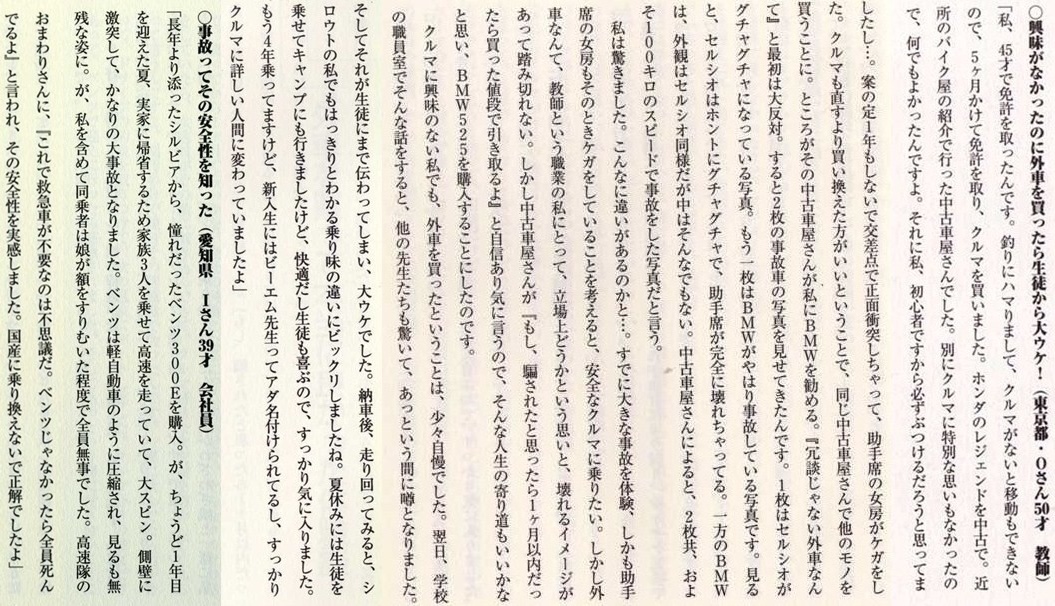 ○興味がなかったのに外車を買ったら生徒から大ウケ!(東京都・Oさん50才 教師)
「私、45才で免許を取ったんです。釣りにハマりまして、クルマがないと移動もできない
ので、5ヶ月かけて免許を取り、クルマを買いました。ホンダのレジェンドを中古で。近
所のバイク屋の紹介で行った中古車屋さんでした。別にクルマに特別な思いもなかったの
で、何でもよかったんですよ。それに私、初心者ですから必ずぶつけるだろうと思ってま
したし…。案の定1年もしないで交差点で正面衝突しちゃって、助手席の女房がケガをし
た。クルマも直すより買い換えた方がいいということで、同じ中古車屋さんで他のモノを
買うことに。ところがその中古車屋さんが私にBMWを勧める。『冗談じゃない外車なん
て』と最初は大反対。すると2枚の事故車の写真を見せてきたんです。1枚はセルシオが
グチャグチャになっている写真。もう一枚はBMWがやはり事故している写真です。見る
と、セルシオはホントにグチャグチャで、助手席が完全に壊れちゃってる。一方のBMW
は、外観はセルシオ同様だが中はそんなでもない。中古車屋さんによると、2枚共、およ
そ100キロのスピードで事故をした写真だと言う。
私は驚きました。こんなに違いがあるのかと…。すでに大きな事故を体験、しかも助手
席の女房もそのときケガをしていることを考えると、安全なクルマに乗りたい。しかし外
車なんて、教師という職業の私にとって、立場上どうかという思いと、壊れるイメージが
あって踏み切れない。しかし中古車屋さんが『もし、騙されたと思ったら1ヶ月以内だっ
たら買った値段で引き取るよ』と自信あり気に言うので、そんな人生の寄り道もいいかな
と思い、BMW525を購入することにしたのです。
クルマに興味のない私でも、外車を買ったということは、少々自慢でした。翌日、学校
の職員室でそんな話をすると、他の先生たちも驚いて、あっという間に噂となりました。
そしてそれが生徒にまで伝わってしまい、大ウケでした。納車後、走り回ってみると、シ
ロウトの私でもはっきりとわかる乗り味の違いにビックリしましたね。夏休みには生徒を
乗せてキャンプにも行きましたけど、快適だし生徒も喜ぶので、すっかり気に入りました。
もう4年乗ってますけど、新入生にはビーエム先生ってアダ名付けられてるし、すっかり
クルマに詳しい人間に変わっていましたよ」
○事故ってその安全性を知った(愛知県 Iさん39才 会社員)
「長年より添ったシルビアから、憧れだったベンツ300Eを購入。が、ちょうど1年目
を迎えた夏、実家に帰省するため家族3人を乗せて高速を走っていて、大スピン。側壁に
激突して、かなりの大事故となりました。ベンツは軽自動車のように圧縮され、見るも無
残な姿に。が、私を含めて同乗者は娘が額をすりむいた程度で全員無事でした。高速隊の
おまわりさんに、『これで救急車が不要なのは不思議だ。ベンツじゃなかったら全員死ん
でるよ』と言われ、その安全性を実感しました。国産に乗り換えないで正解でしたよ」